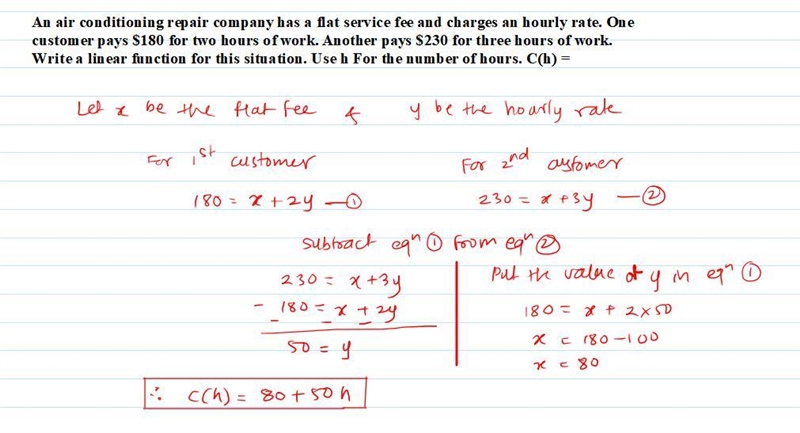 An air conditioning repair company has a flat service fee and charges an hourly rate. One
customer pays $180 for two hours of work. Another pays $230 for three hours of work.
Write a linear function for this situation. Use h For the number of hours. C(h) =
Let x be the flat fee & y be the hourly rate
For 1st customer
180 = x + 2y —①
For 2nd customer
230 = x + 3y —②
subtract eqⁿ ① from eqⁿ ②
230 = x + 3y
- 180 = x + 2y
- - -
50 = y
Put the value of y in eqⁿ ①
180 = x + 2×50
x = 180 - 100
x = 80
∴ C(h) = 80 + 50 h